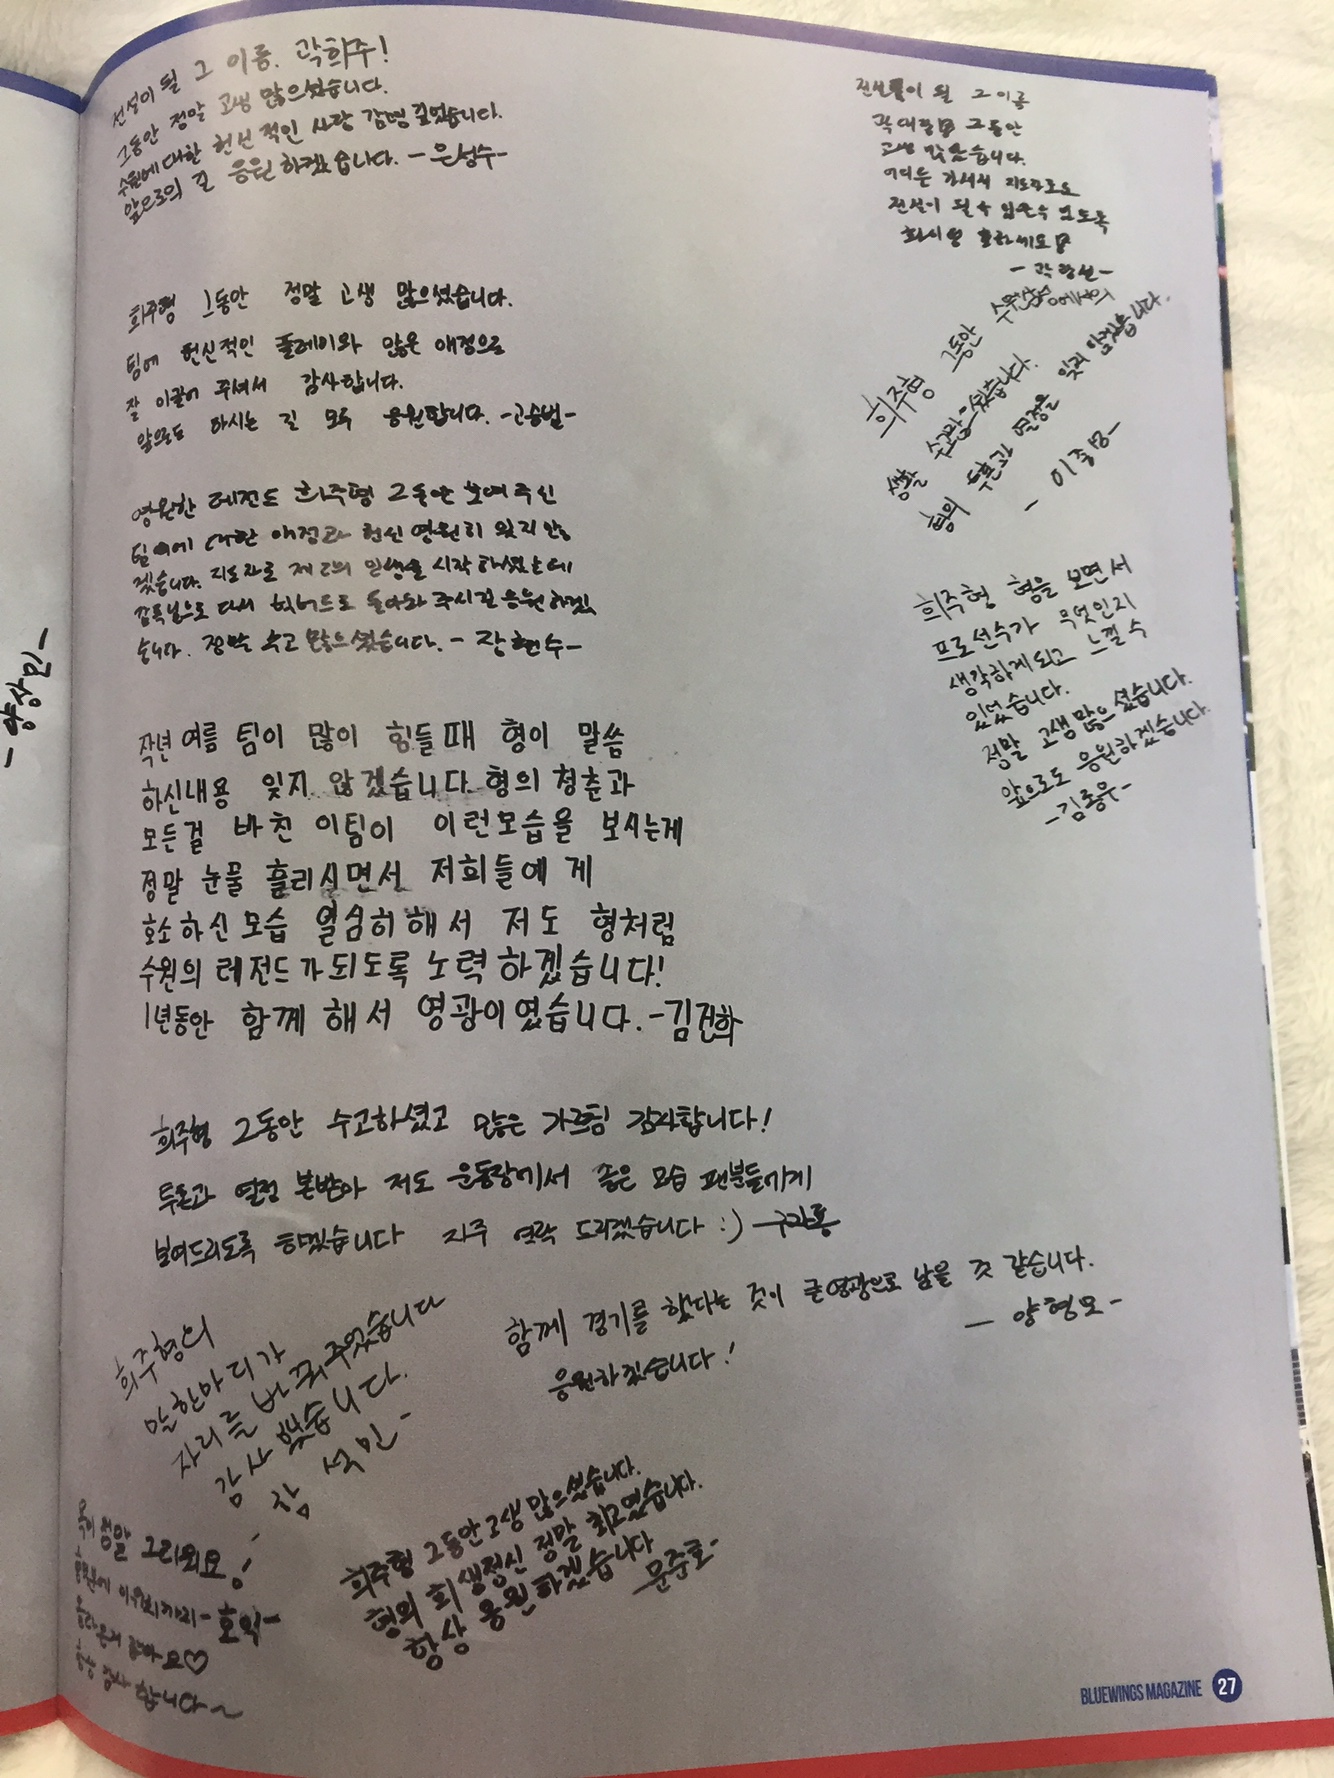 전설이 될 그 이름. 곽희주!
그동안 정말 고생 많으셨습니다.
수원에 대한 헌신적인 사랑 감명 깊었습니다.
앞으로의 길 응원 하겠습니다. -은성수-
희주형 그동안 정말 고생 많으셨습니다.
팀에 헌신적인 플레이와 많은 애정으로
잘 이끌어 주셔서 감사합니다.
앞으로도 마시는 길 모두 응원합니다. -고승범-
영원한 레전드 희주형 그동안 보여주신
팀에 대한 애정과 헌신 영원히 잊지 않
겠습니다. 지도자로 제2의 인생을 시작하셨는데
감독님으로 다시 빅버드로 돌아와 주시길 응원하겠
습니다. 정말 수고 많으셨습니다. -장현수-
작년 여름 팀이 많이 힘들때 형이 말씀
하신내용 잊지 않겠습니다. 형의 청춘과
모든걸 바친 이팀이 이런모습을 보시는게
정말 눈물 흘리시면서 저희들에게
호소하신 모습 열심히해서 저도 형처럼
수원의 레전드가되도록 노력하겠습니다!
1년동안 함께해서 영광이였습니다. -김건희
희주형 그동안 수고하셨고 많은 가르침 감사합니다!
투혼과 열정 본받아 저도 운동장에서 좋은 모습 팬분들에게
보여드리도록 하겠습니다 자주 연락 드리겠습니다 :) -구자룡
함께 경기를 했다는 것이 큰영광으로 남을 것 같습니다.
응원하겠습니다!
- 양형모 -
희주형의
말한마디가
자리를 바꿔주었습니다
감사했습니다.
- 함석민 -
희주형 그동안 고생 많으셨습니다.
형의 희생정신 정말 최고였습니다.
항상 응원하겠습니다
문준호-
정말 그리워요!
-호익-
♡
합니다~
전설이 될 그 이름
곽대장 그동안
고생 많았습니다.
어디든 가셔서 지도자로도
전설이 될수 있도록
화이팅 하세요
-곽광선-
희주형 그동안 수원삼성에서의
생활 수고많으셨습니다.
형의 투혼과 열정을 잊지 않겠습니다.
희주형 형을 보면서
프로선수가 무엇인지
생각하게되고 느낄 수
있었습니다.
정말 고생많으셨습니다.
앞으로도 응원하겠습니다.
-김종우-
-양상민-
BLUEWINGS MAGAZINE 27